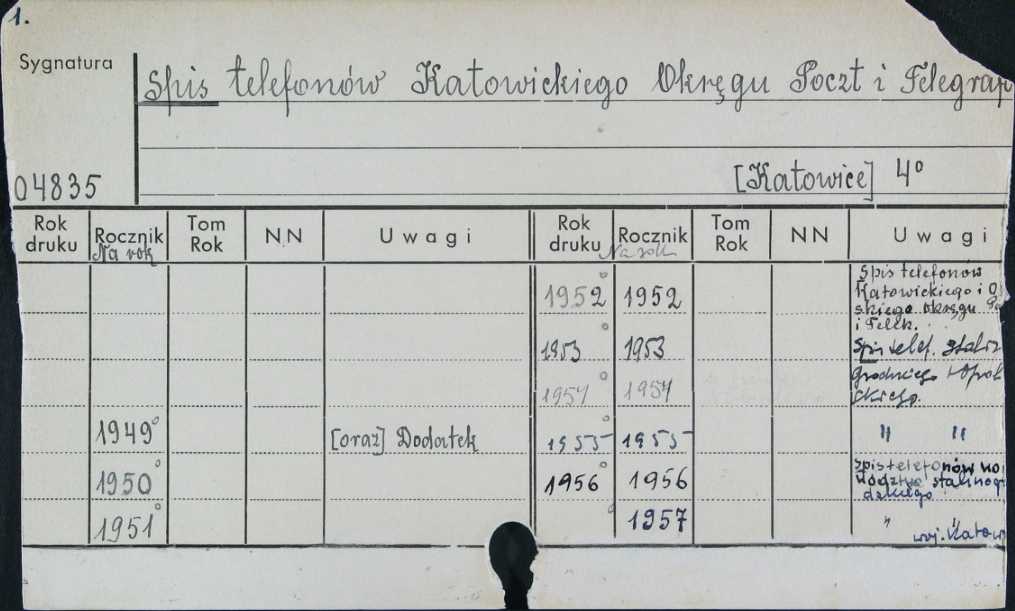 1.
Sygnatura
Spis telefonów Katowickiego Okręgu Poczt i Telegraf
04835
[Katowice] 4°
Rok druku Rocznik Tom Rok NN Uwagi Rok druku Rocznik Tom Rok NN Uwagi
Na rok Na rok
1952° 1952 Spis telefonów
Katowickiego i O
skiego okręgu
i Telek.
1953° 1953 Spis telef. stalin
1954° 1954 grodzkiego i Opol
skiego.
1949° [oraz] Dodatek 1955° 1955 " "
1950° 1956° 1956 Spis telefonów wo
wództwa stalinog
dzkiego
1951° 1957 " "
woj. Katow